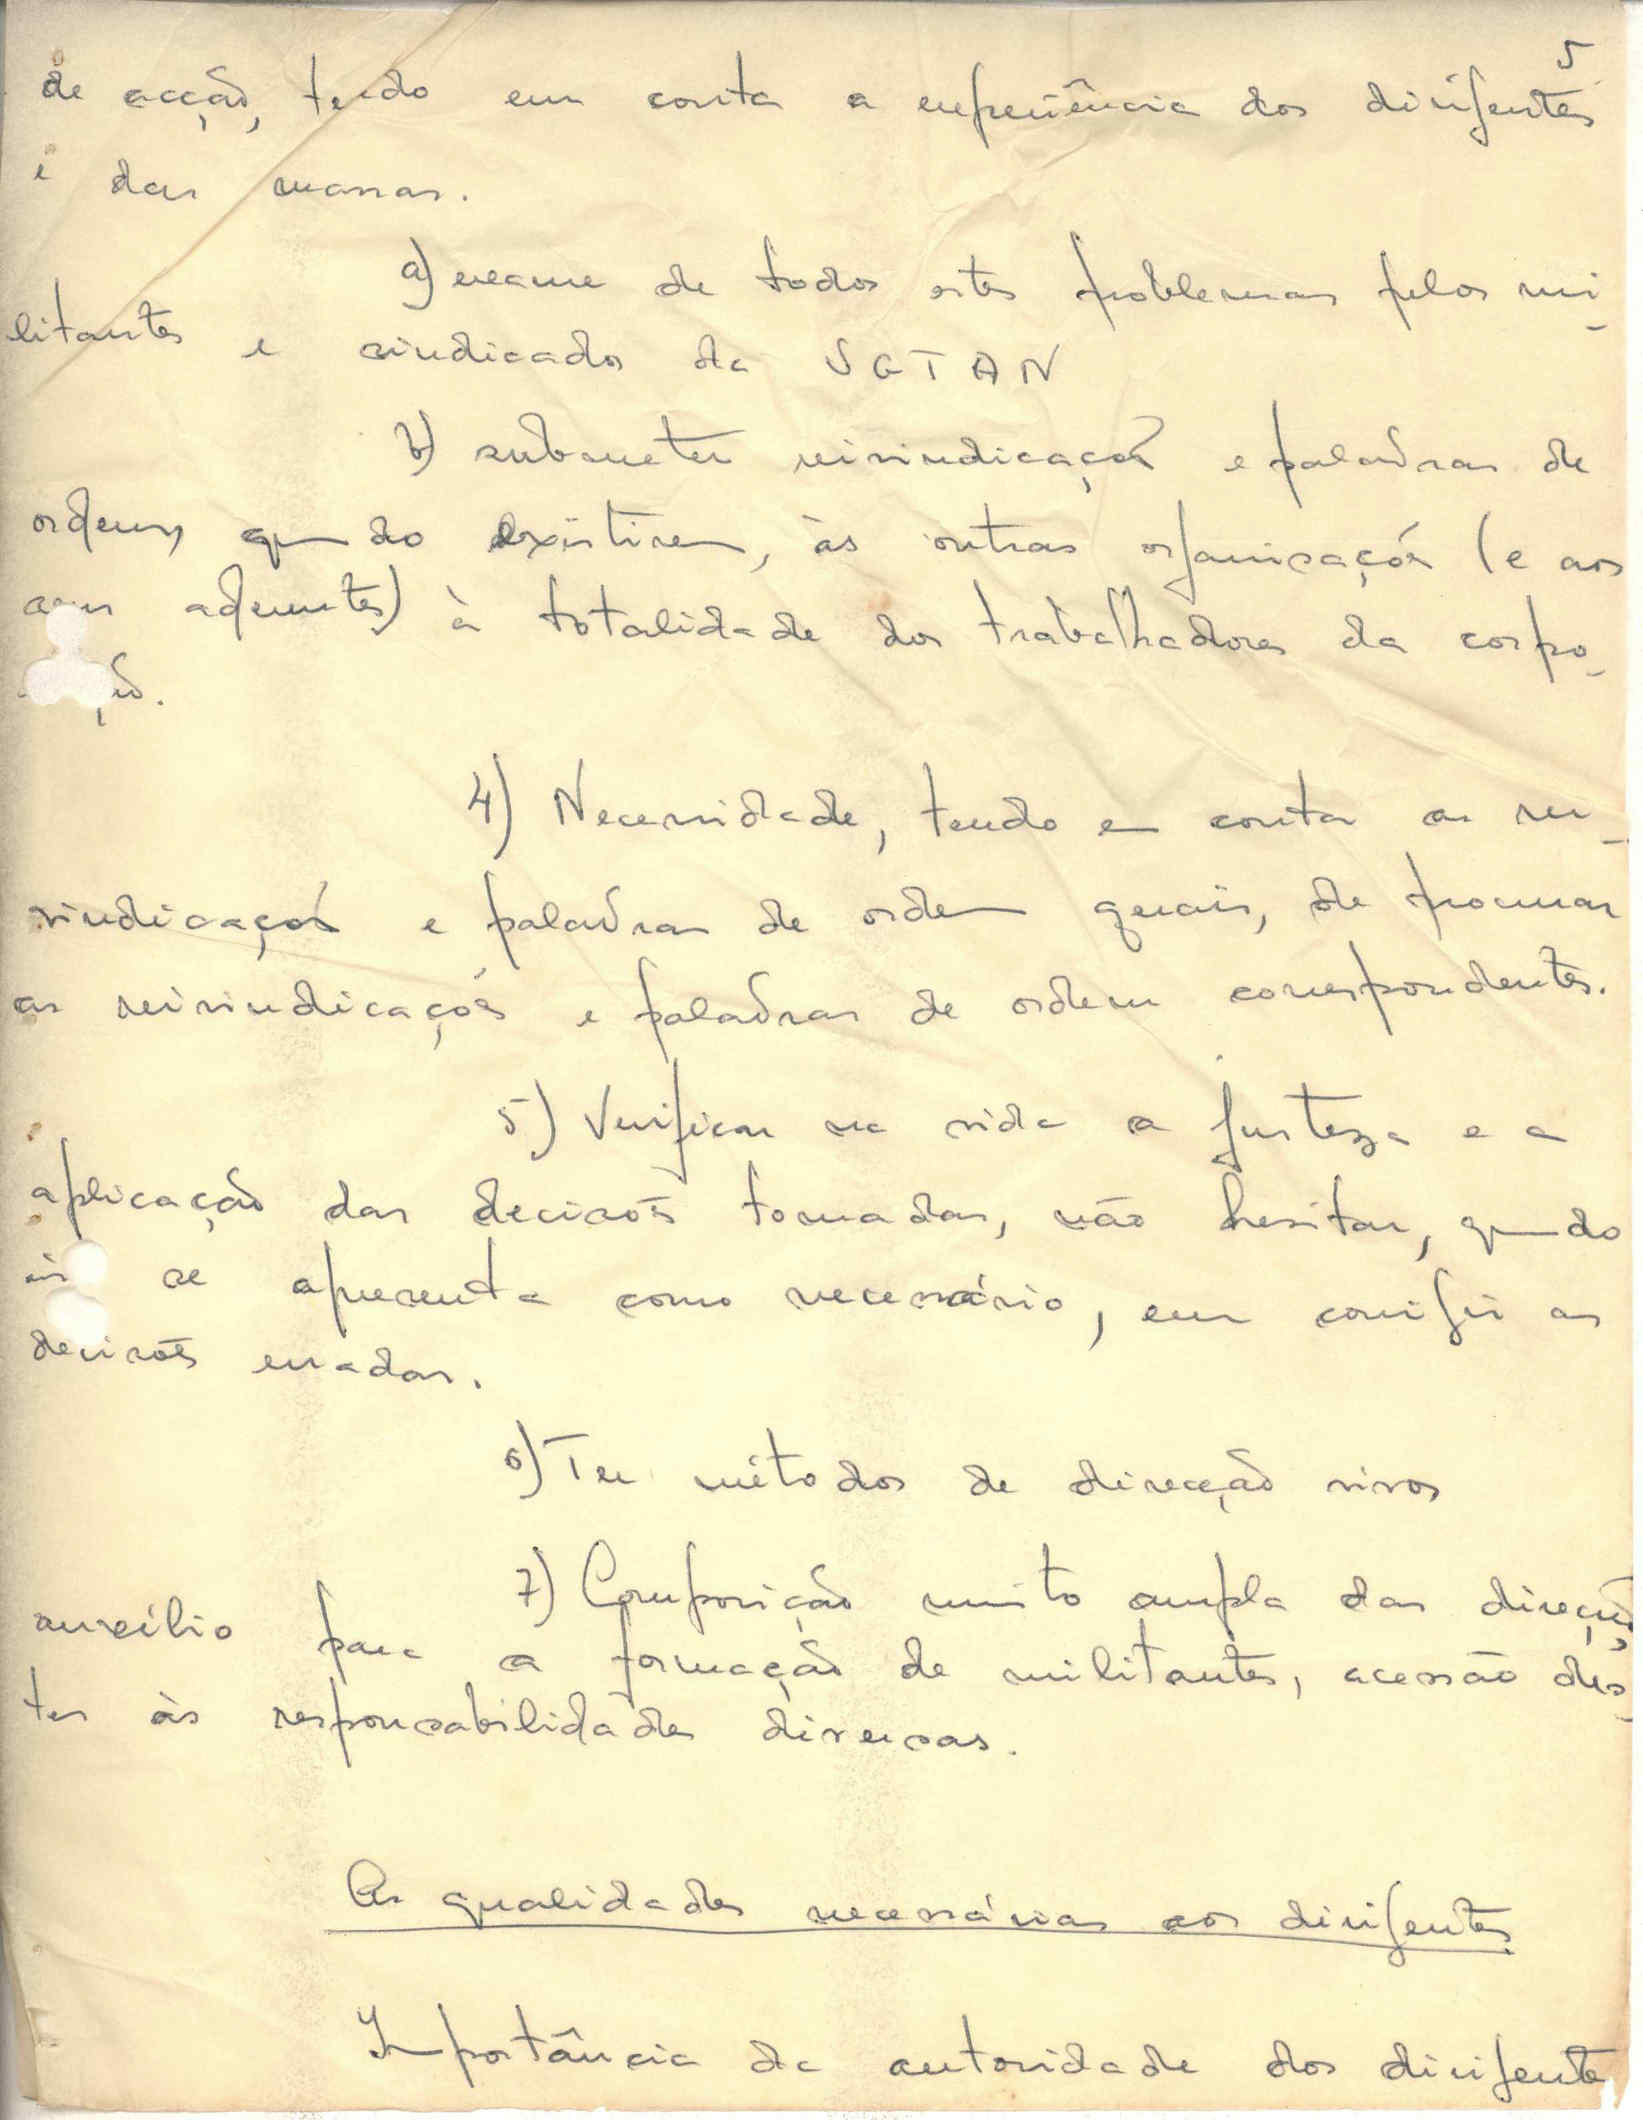 5
de acção, tendo em conta a experiência dos dirigentes
e das massas.
a) exame de todos estes problemas pelos mi-
litantes e sindicados da UGTAN
b) submeter reivindicações e palavras de
ordem, quando existirem, às outras organizações (e aos
seus aderentes) à totalidade dos trabalhadores da corpo-
ção.
4) Necessidade, tendo em conta as rei-
vindicações e palavras de ordem gerais, de procurar
as reivindicações e palavras de ordem correspondentes.
5) Verificar na vida a justeza e a
aplicação das decisões tomadas, não hesitar, quando
se apresenta como necessário, em corrigir as
decisões erradas.
6) Ter métodos de direcção vivos
7) Composição muito ampla das direcções
auxílio para a formação de militantes, acessão des-
tes às responsabilidades diversas.
As qualidades necessárias aos dirigentes
Importância da autoridade dos dirigentes